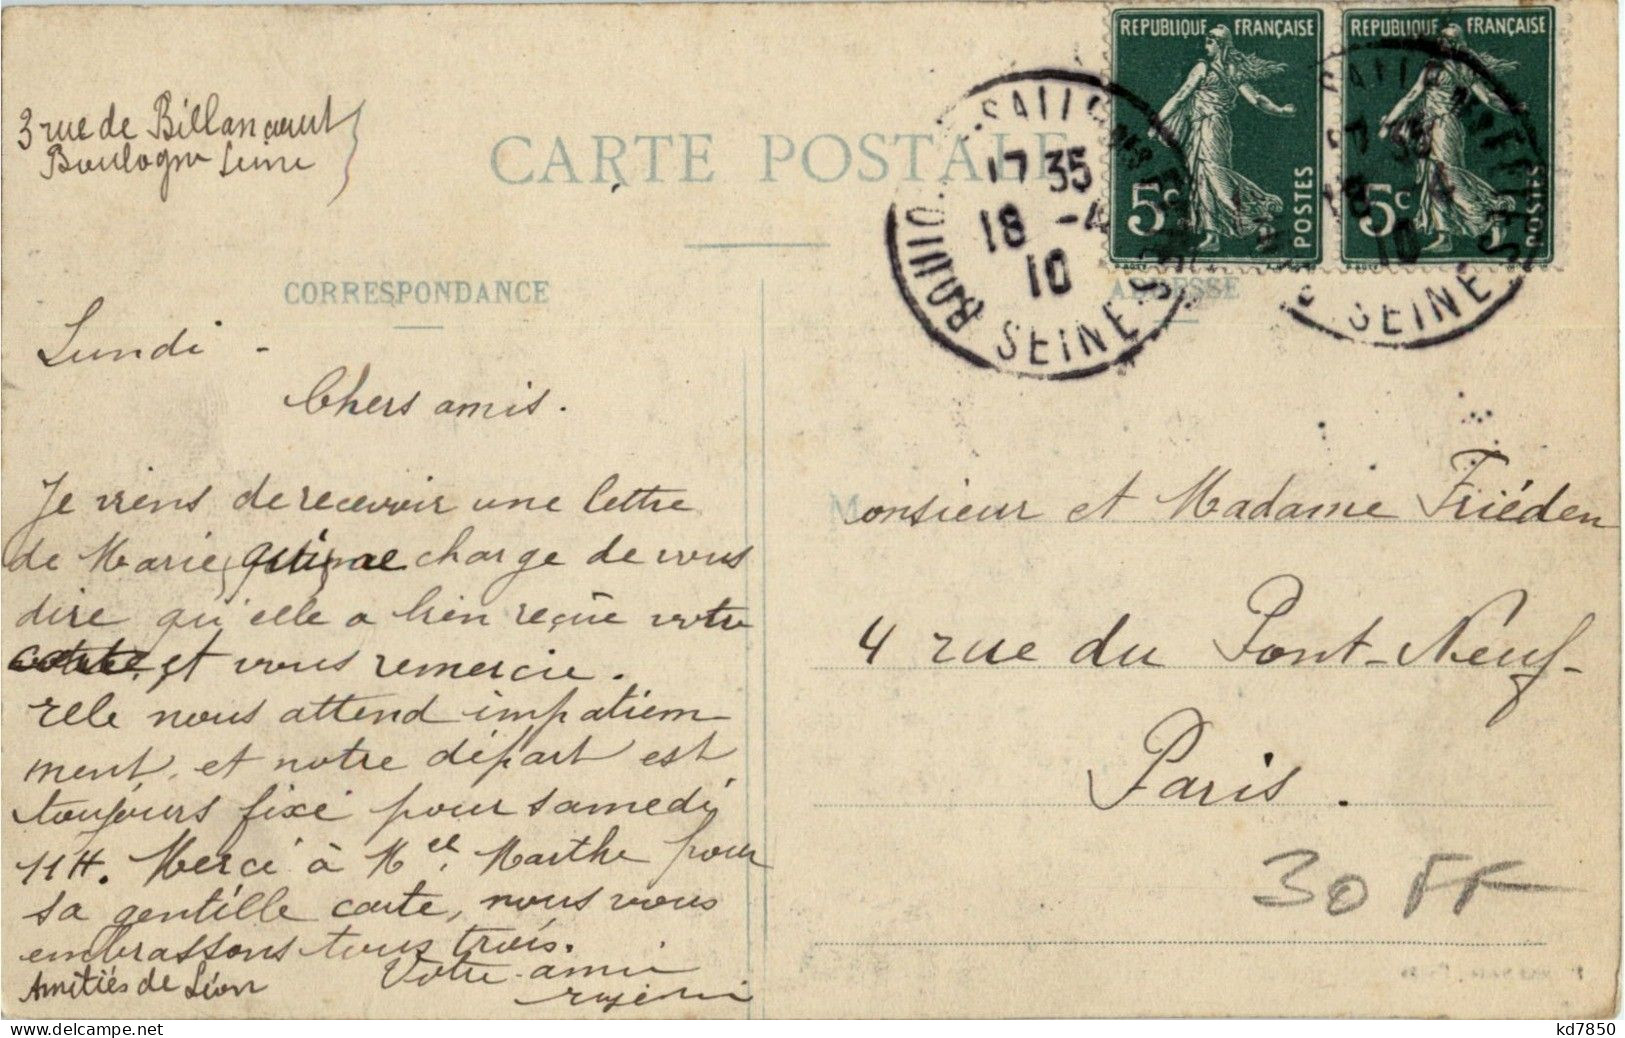 3 rue de Billancourt
Boulogne Seine
CARTE POSTALE
REPUBLIQUE FRANÇAISE
5c
POSTES
REPUBLIQUE FRANÇAISE
5c
POSTES
17 35
18 -4
10
SEINE
10
SEINE
CORRESPONDANCE
ADRESSE
Lundi -
Chers amis.
Je viens de recevoir une lettre
de Marie, qui me charge de vous
dire qu'elle a bien reçue votre
carte et vous remercie.
elle nous attend impatiem
ment, et notre départ est
toujours fixé pour samedi
11H. Merci à Melle Marthe pour
sa gentille carte, nous vous
embrassons tous trois.
Votre amie
Amitiés de Léon
Monsieur et Madame Friéden
4 rue du Pont-Neuf-
Paris.
30 FF
kd7850